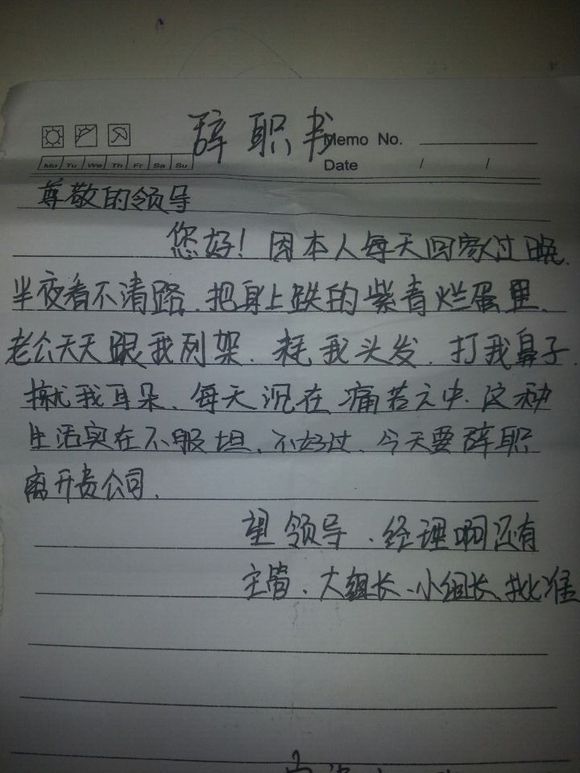 辞职书
Memo No.
Mo Tu We Th Fr Sa Su
Date / /
尊敬的领导
您好！因本人每天回家过晚，
半夜看不清路、把身上跌的紫青烂蛋里、
老公天天跟我列架、耗我头发、打我鼻子、
揪我耳朵、每天沉在痛苦之中、这种
生活实在不服坦、不好过、今天要辞职
离开贵公司、
望领导、经理啊还有
主管、大组长、小组长、批准